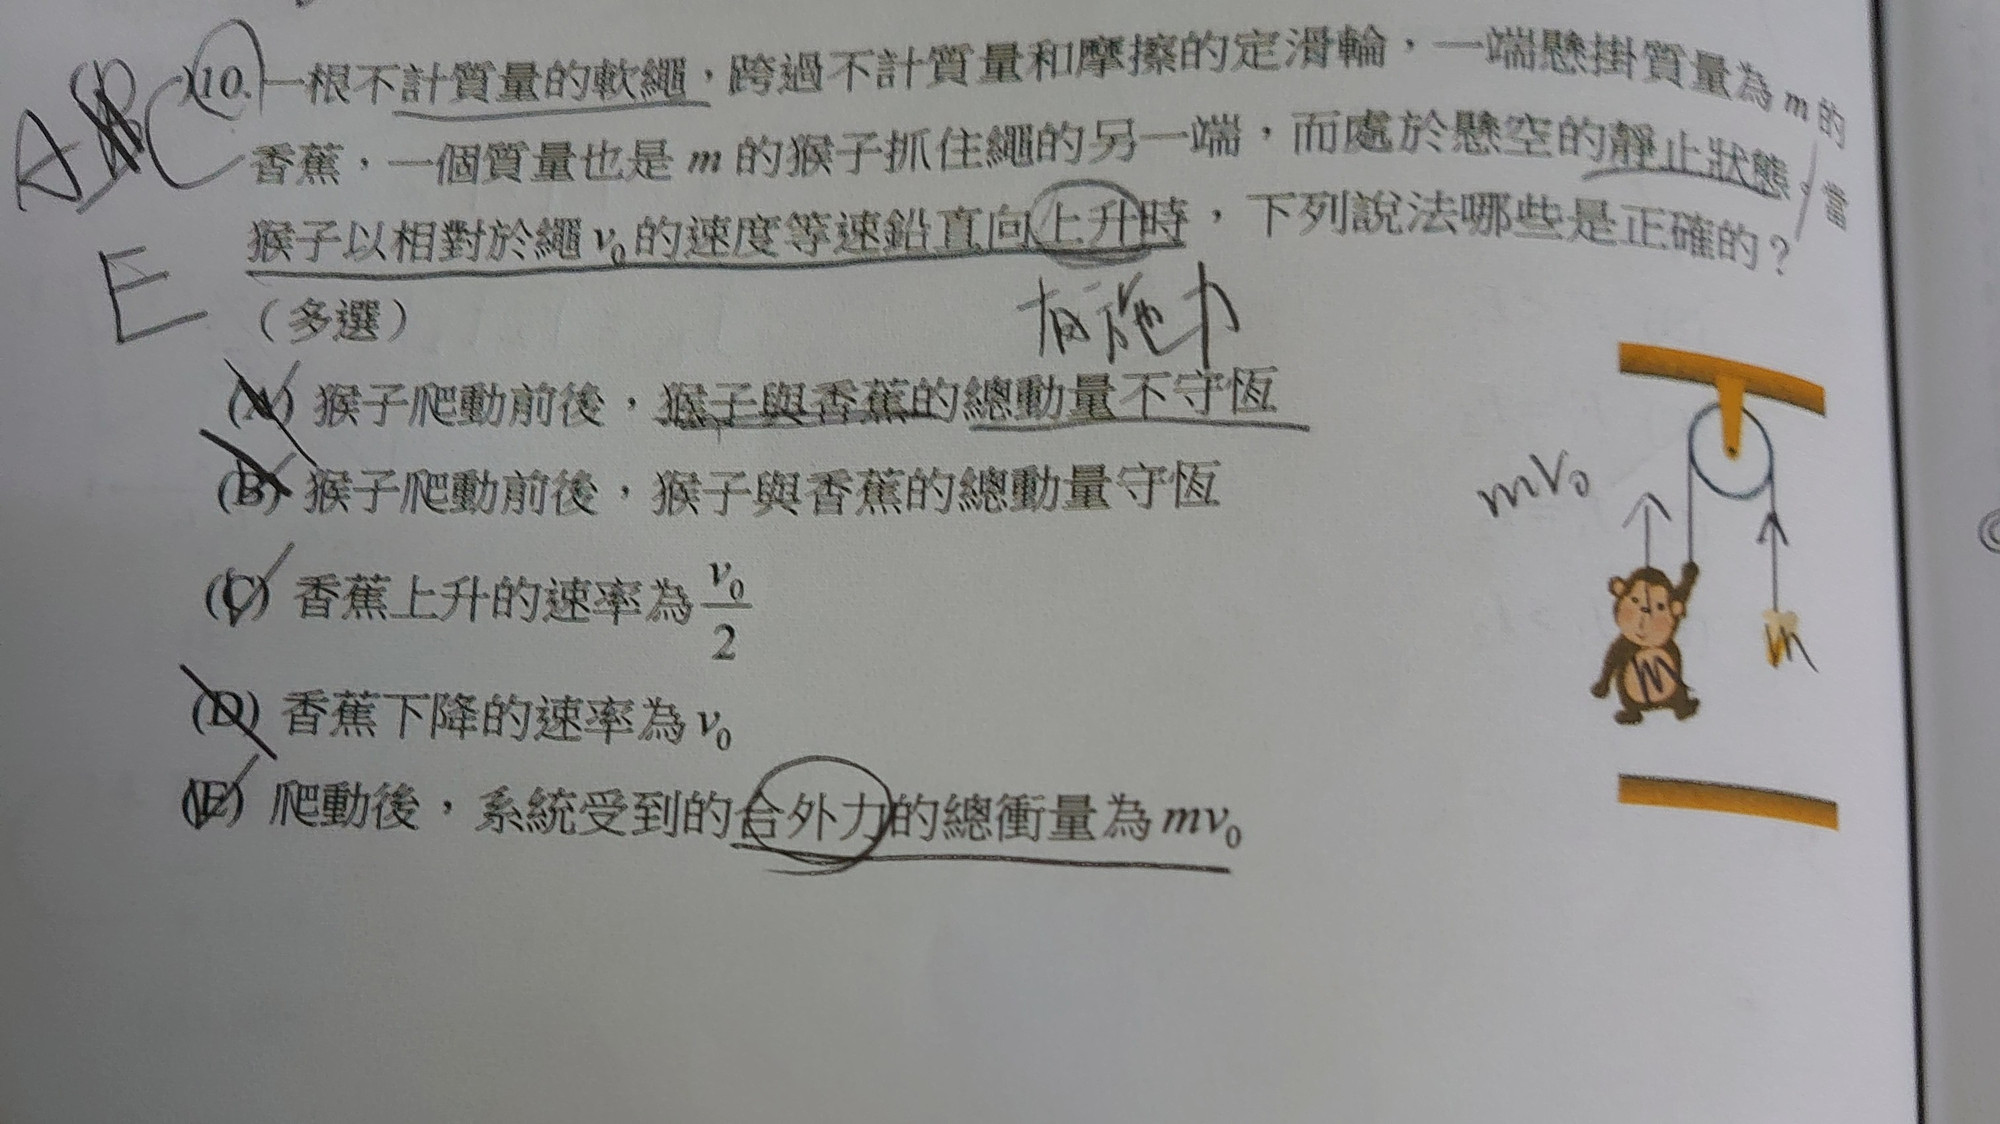 ABC
10. 一根不計質量的軟繩，跨過不計質量和摩擦的定滑輪，一端懸掛質量為 m 的
香蕉，一個質量也是 m 的猴子抓住繩的另一端，而處於懸空的靜止狀態，當
猴子以相對於繩 v₀ 的速度等速鉛直向上升時，下列說法哪些是正確的？
E
（多選）
有施力
(A) 猴子爬動前後，猴子與香蕉的總動量不守恆
(B) 猴子爬動前後，猴子與香蕉的總動量守恆
mv₀
(C) 香蕉上升的速率為 v₀/2
m
m
(D) 香蕉下降的速率為 v₀
(E) 爬動後，系統受到的合外力的總衝量為 mv₀